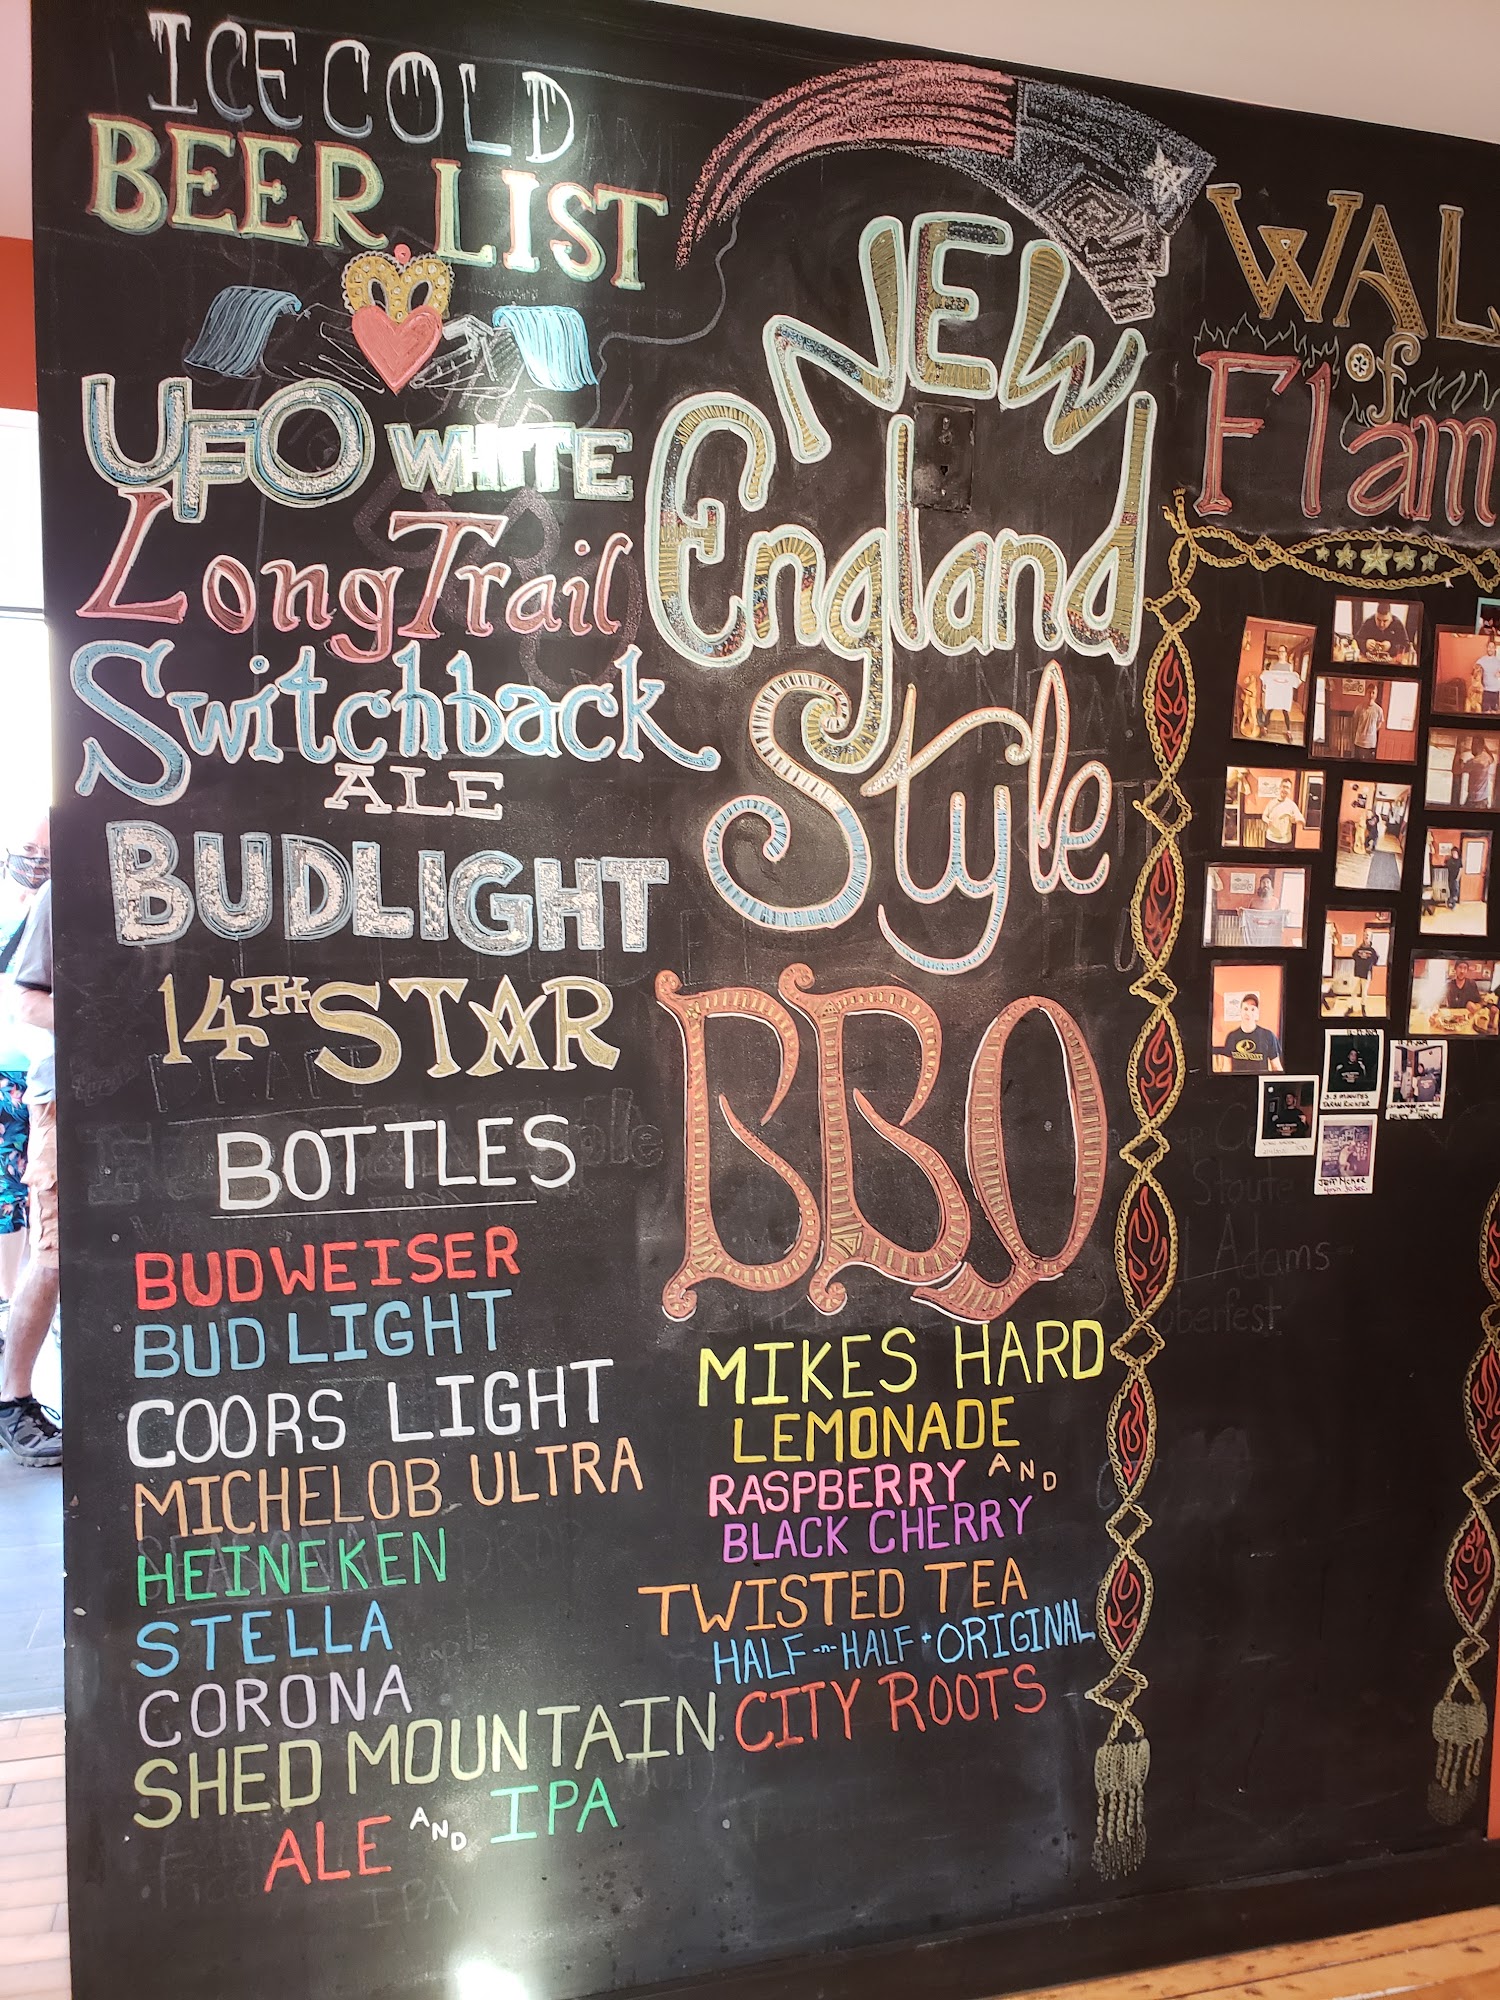 ICE COLD
BEER LIST
UFO WHITE
LongTrail
Switchback
ALE
BUDLIGHT
14TH STAR
BOTTLES
BUDWEISER
BUD LIGHT
COORS LIGHT
MICHELOB ULTRA
HEINEKEN
STELLA
CORONA
SHED MOUNTAIN
ALE AND IPA
NEW
England
Style
BBQ
MIKES HARD
LEMONADE
RASPBERRY AND
BLACK CHERRY
TWISTED TEA
HALF-n-HALF + ORIGINAL
CITY ROOTS
WAL
of
Flam
Stoute
Adams
oberfest
IPA
Jeff McKee